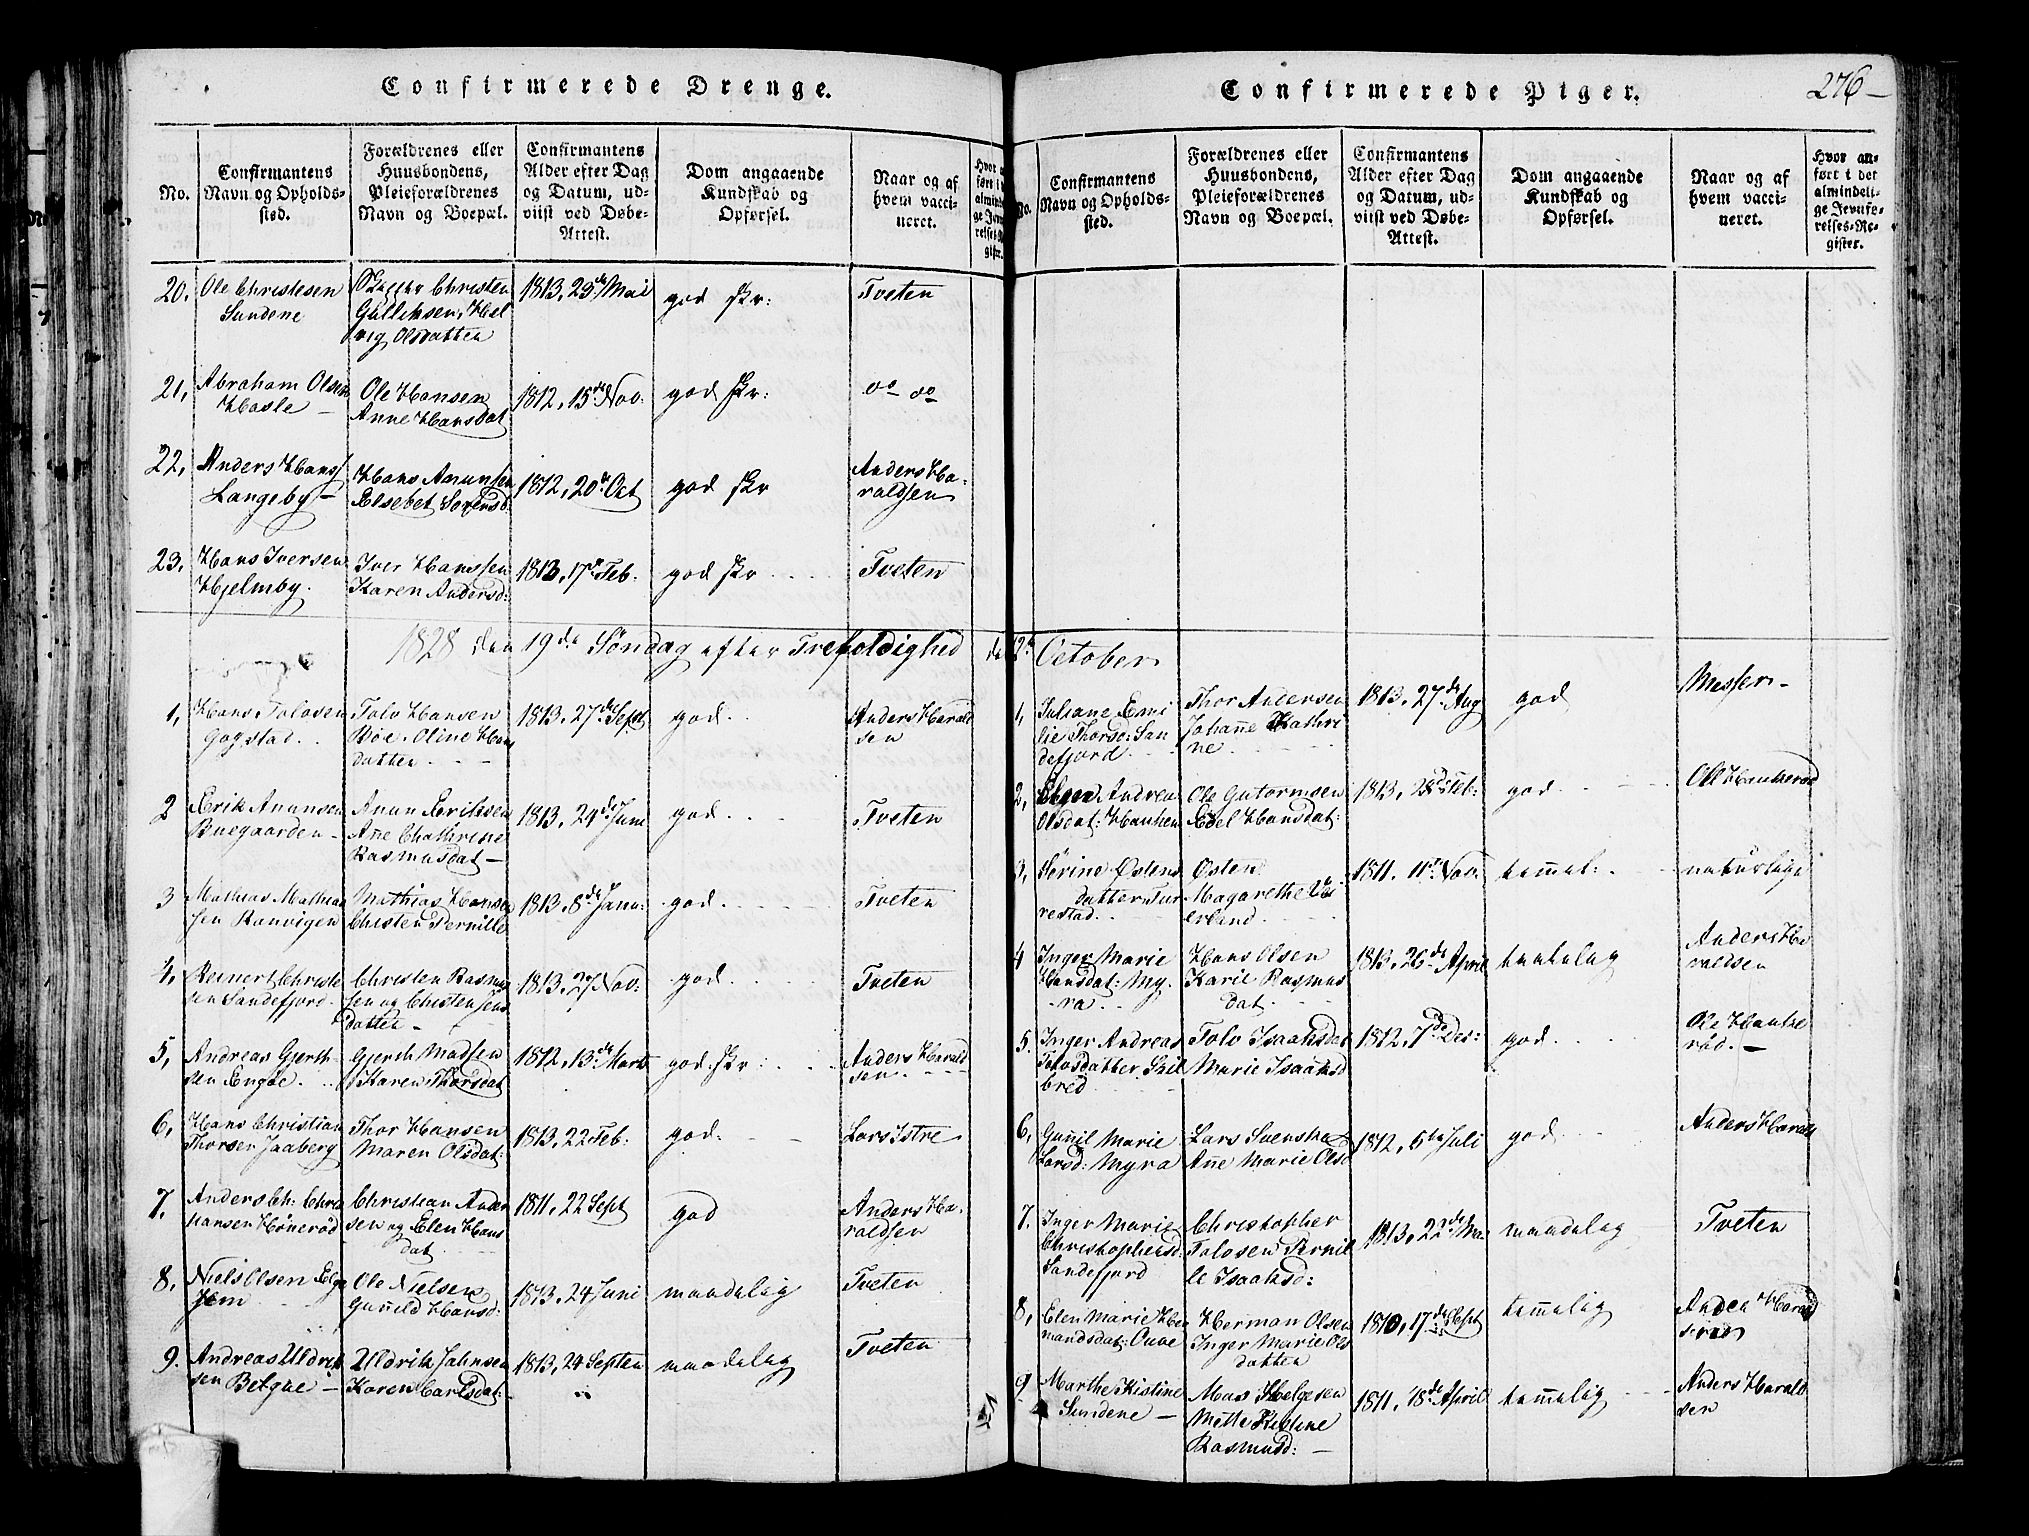 Confirmerede Drenge.
No.
Confirmantens
Navn og Opholds-
sted.
Forældrenes eller
Huusbondens,
Pleieforældrenes
Navn og Boepæl.
Confirmantens
Alder efter Dag
og Datum, ud-
viist ved Døbe-
Attest.
Dom angaaende
Kundskab og
Opførsel.
Naar og af
hvem vacci-
neret.
20. Ole Christesen
Sundene
Christen
Gulliksen, Hel
vig Olsdatten
1813, 23de Mai
god skr:
Tveten
21, Abraham Olsen
Hasle –
Ole Hansen
Anne Hansdat:
1812, 15de Nov:
god skr:
do do
22, Anders Hans
Langeby –
Hans Amunsen
Elsebet Sørensd:
1812, 20de Oct
god skr
Anders Ha-
raldsen
23, Hans Iversen
Hjelmby.
Iver Hanssen
Karen Andersd:
1813, 17de Feb.
god skr
Tveten
1828 den 19de Søndag efter Trefoldighed
1, Hans Tolosen
Gogstad.
Tolv Hansen
Bøe. Oline Hans
datten
1813, 27de Sept
god.
Anders Harald
sen
2 Erik Anunsen
Buegaarden –
Anun Eriksen
Añe Chathrine
Rasmusdat –
1813, 24de Juni
god
Tveten
3 Mathias Mathia
sen Ranvigen
Mathias Hansen
Chisten Pernille
1813, 8de Janu:
god.
Tveten
4, Reinert Christe
sen Sandefjord.
Christen Rasmus
sen og Chisten Jens
datten –
1813, 27 Nov:
god.
Tveten
5, Andreas Gjerth
sen Engøe.
Gjerth Madsen
Karen Thorsdat
1812, 13de Marts
god skr:
Anders Harald
sen
6, Hans Christian
Thorsen Jaaberg
Thor Hansen
Maren Olsdat:
1813, 22 Feb:
god:
Lars Istre
7. Anders Ch: Chris
hansen Hønerød
Christian Ander
sen og Elen Hans
dat
1811, 22 Sept
god
Anders Ha-
raldsen
8, Niels Olsen Helge
Jem
Ole Nielsen
Guñild Hansd:
1813, 24 Juni
maadelig
Tveten
9. Andreas Uldrik
sen Betgue –
Uldrik Jahnsen
Karen Carlsdat:
1813, 24 Septen
maadelag
Tveten
Confirmerede Piger.
276
No.
Confirmantens
Navn og Opholds-
sted.
Forældrenes eller
Huusbondens,
Pleieforældrenes
Navn og Boepæl.
Confirmantens
Alder efter Dag
og Datum, ud-
viist ved Døbe-
Attest.
Dom angaaende
Kundskab og
Opførsel.
Naar og af
hvem vacci-
neret.
Hvor an-
ført i det
almindeli-
ge Jevnfø-
relses-Re-
gister.
October
1, Juliane Emi
lie Thorsd: San
defjord
Thor Andersen
Johañe Kathri
ne
1813, 27de Aug
god
Messen –
2, Andrea
Olsdat: Hauken
Ole Gutormsen
Edel Hansdat:
1813, 28de Feb:
god.
Ole Haukerød
3, Sørine Østens
datter
restad
Østen
Magarethe
1811. 11te Nov:
temmel:
naturlige
4 Inger Marie
Hansdat: My-
ra
Hans Olsen
Karie Rasmus
dat
1813, 26de April
Anders Ha
raldsen
5. Inger Andreas
Tolosdatter Skil
bred
Tolv Isaaksdat
Marie Isaaksd
1812, 7de Des:
god.
Ole Hauke
rød. –
6, Guñil Marie
Larsd: Myra
Lars Svenske
Añe Marie Olsd
1812, 5te Juli
god
Anders Harald
7. Inger Marie
Christophersd:
Sandefjord
Christopher
Tolosen Pernil
le Isaaksd:
1813, 22de Ma
maadelag
Tveten
8, Elen Marie Her
mandsdat:
Herman Olsen
Inger Marie Ols
datten
1810, 17de Sept
temmelig
Harald
9 Marthe Kistine
Sundene –
Mons Helgesen
Mette Kistine
Rasmusd: –
1811, 18de April
temmelig
Anders Harald
sen